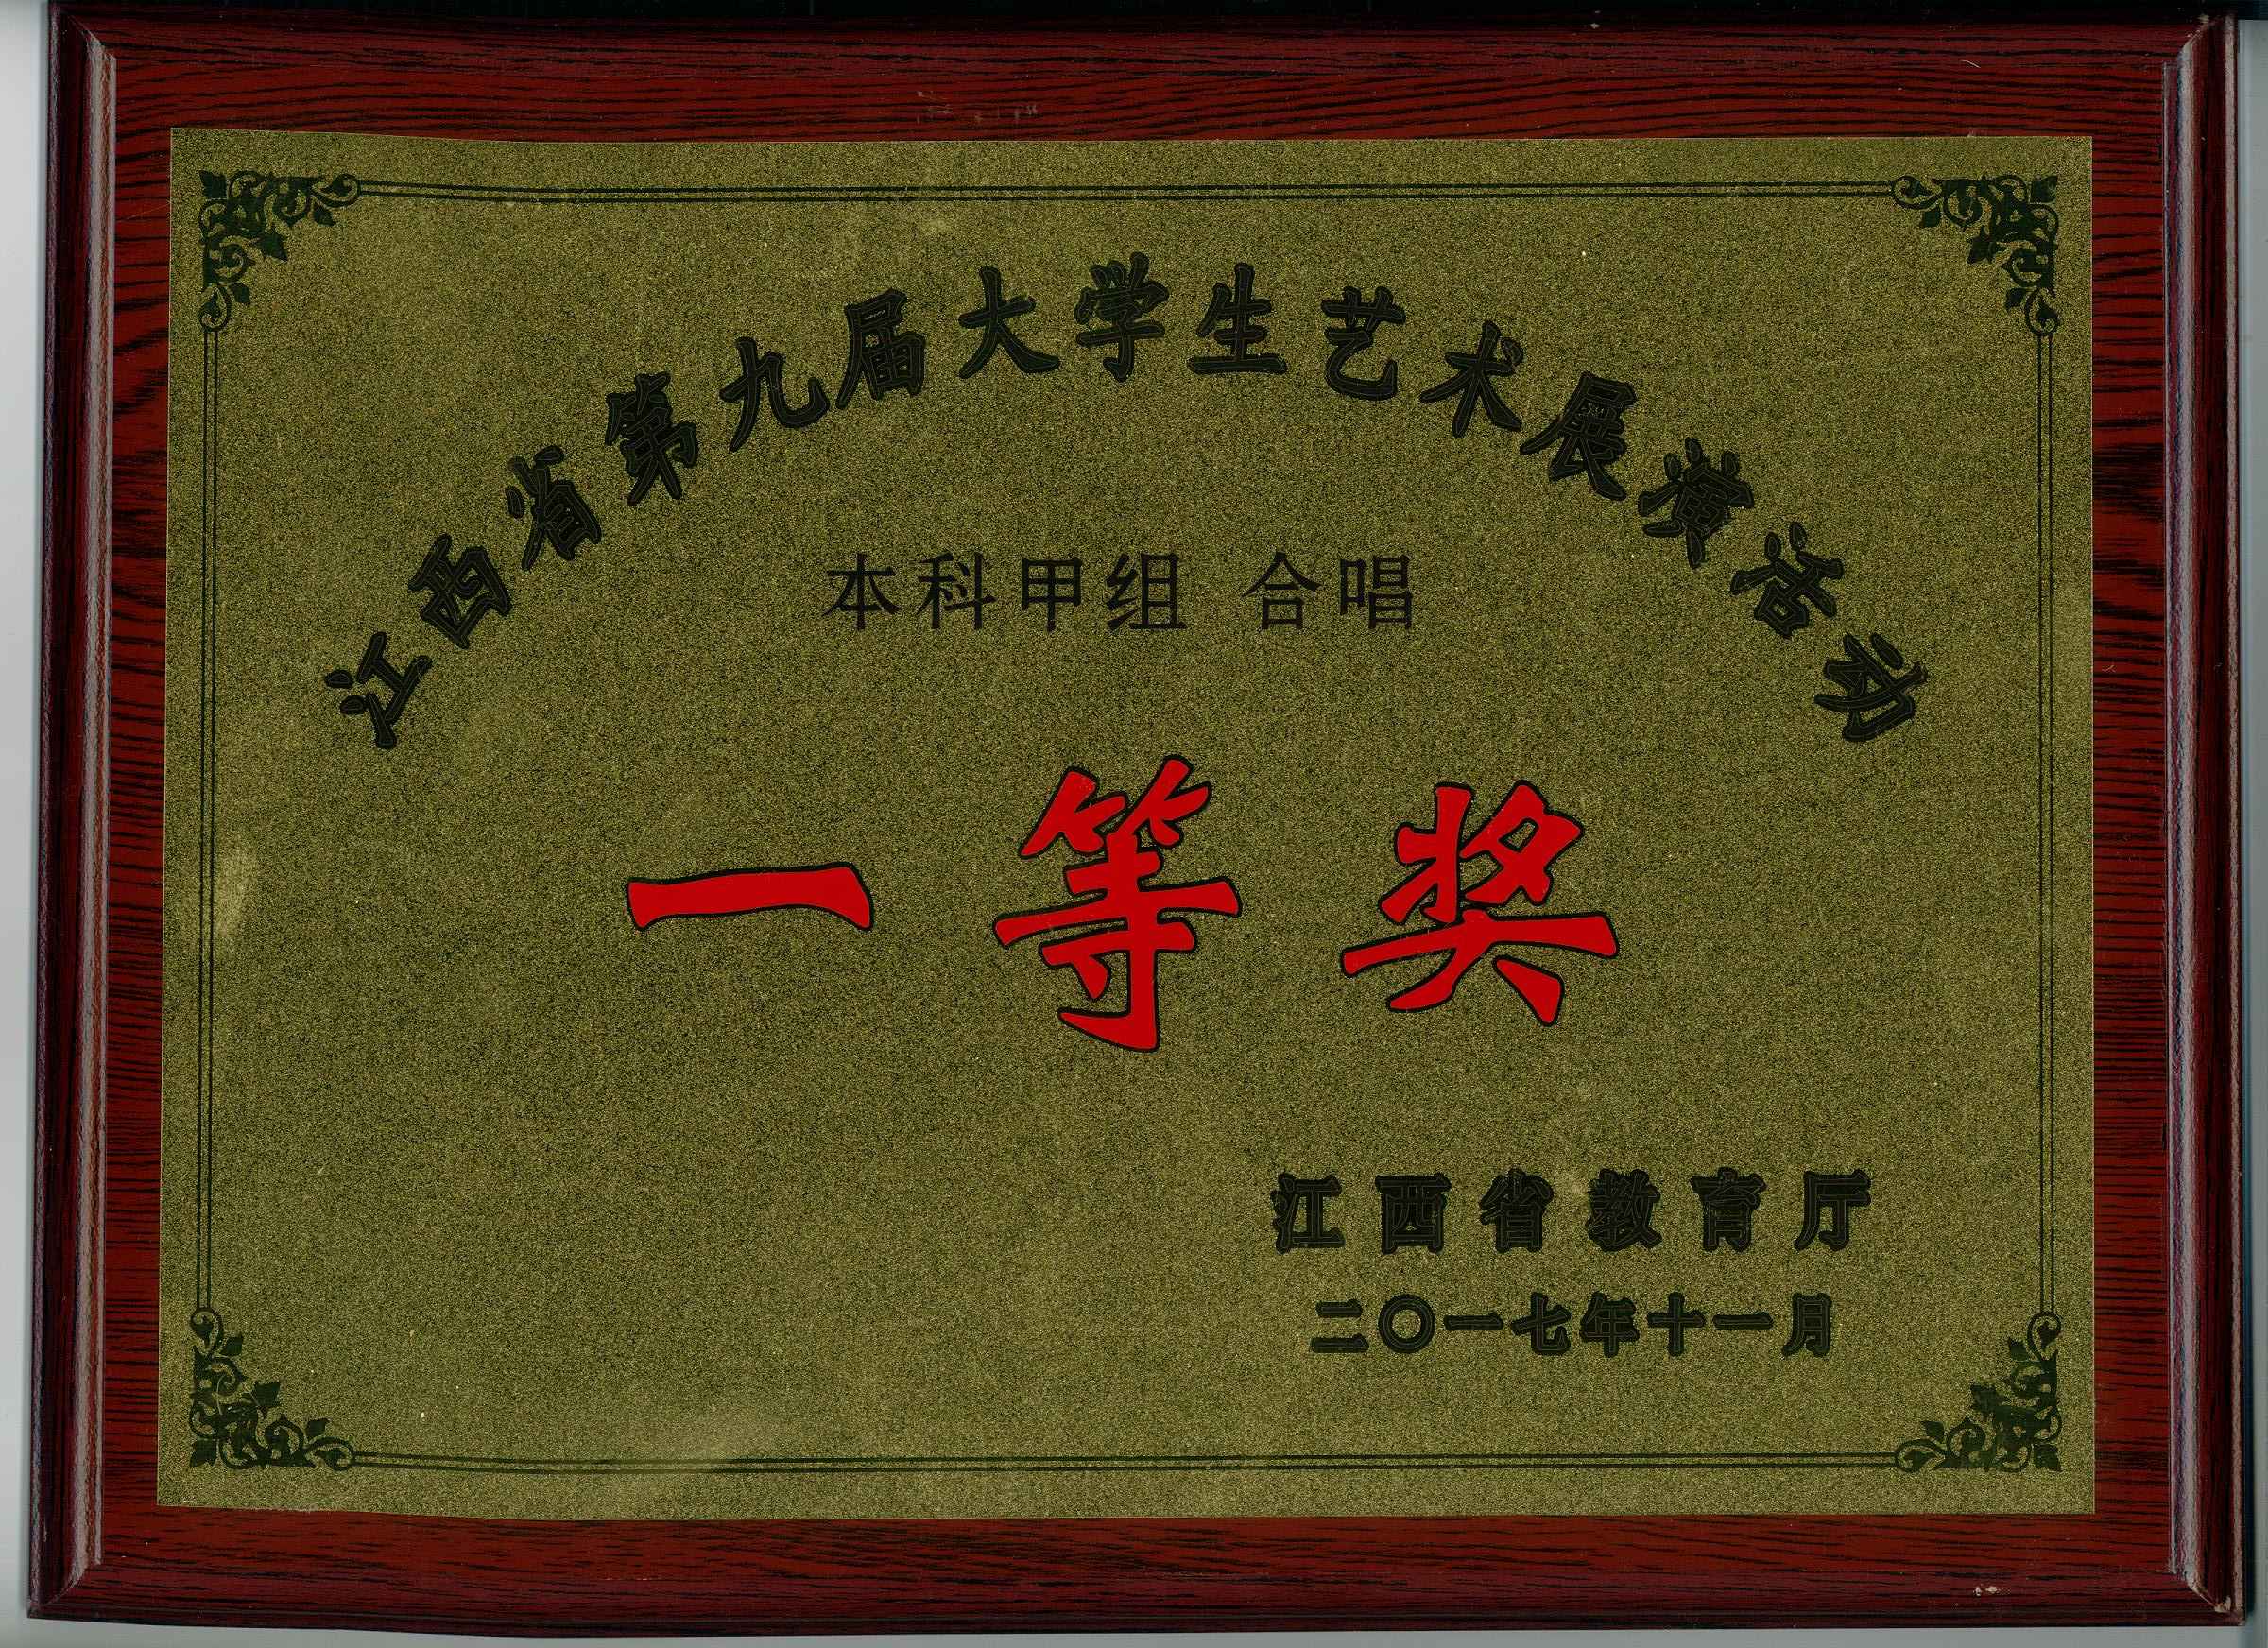 江西省第九届大学生艺术展演活动
本科甲组 合唱
一等奖
江西省教育厅
二〇一七年十一月